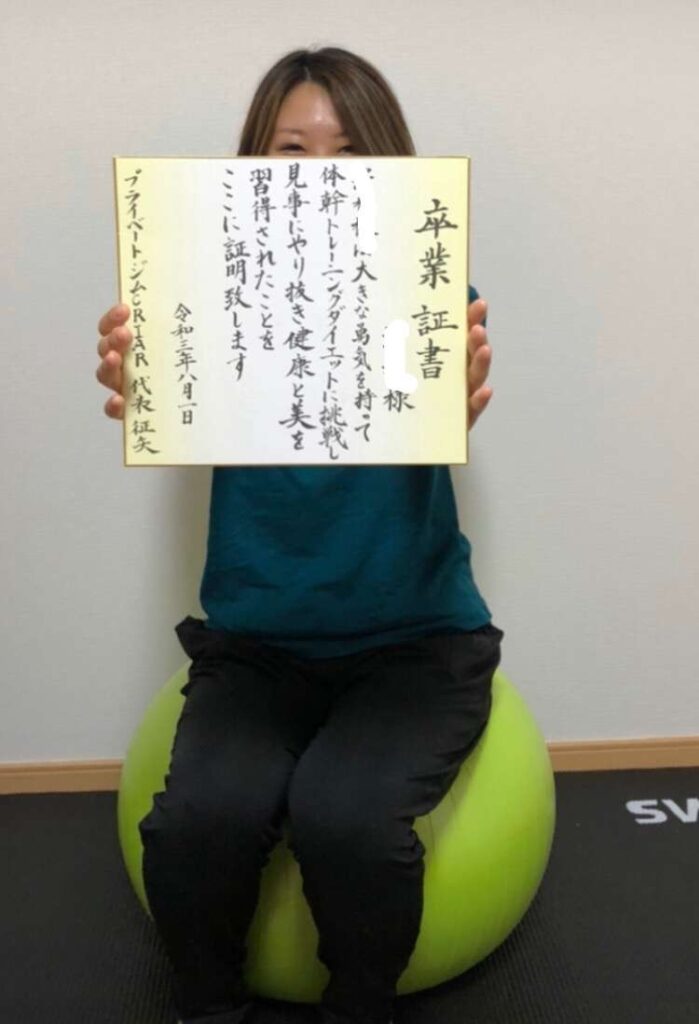 卒業証書
様
は大きな勇気を持って
体幹トレーニングダイエットに挑戦し
見事にやり抜き健康と美を
習得されたことを
ここに証明致します
令和三年八月一日
プライベートジムCRIAR 代表 征矢
SW